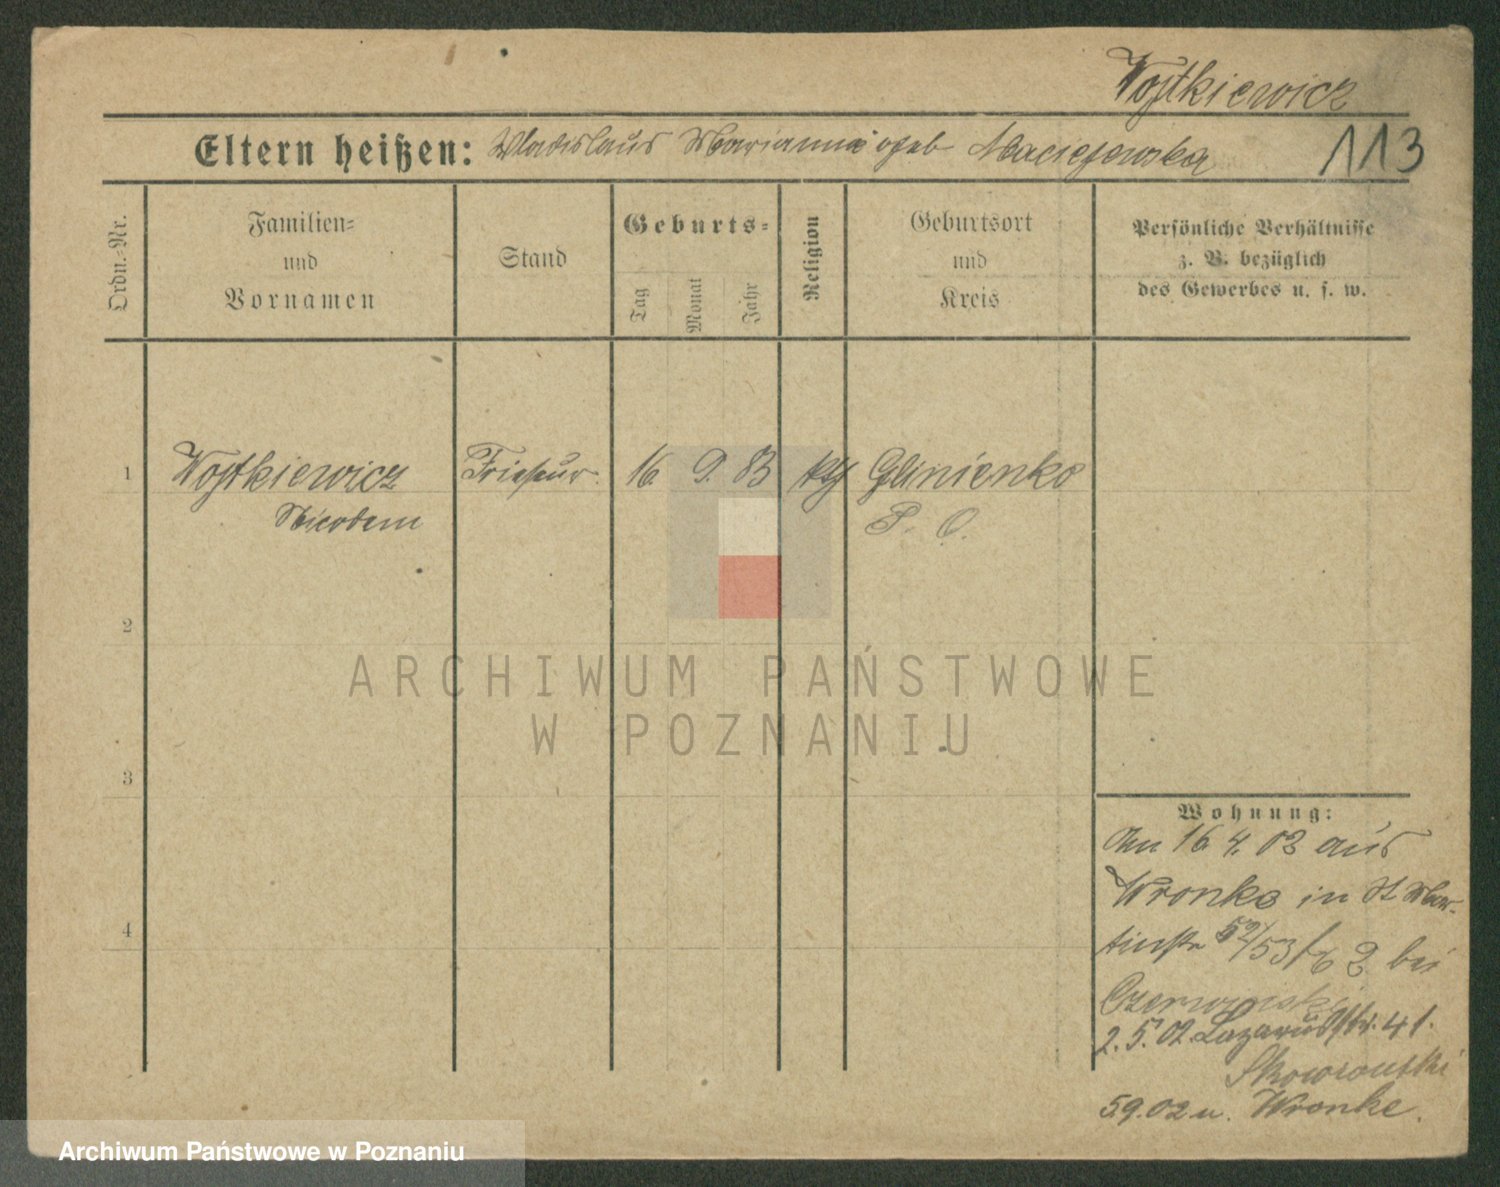 Wojtkiewicz
Eltern heißen: Wladislaus Marianna geb Maciejewska 113
Ordn.-Nr.
Familien-
und
Vornamen
Stand
Geburts-
Tag
Monat
Jahr
Religion
Geburtsort
und
Kreis
Persönliche Verhältnisse
z. B. bezüglich
des Gewerbes u. s. w.
1 Wojtkiewicz Friseur. 16. 9. 83 kth Glinienko
Nicodem P. O.
2
3
4
Wohnung:
Am 16 4. 02 aus
Wronke in St Mar-
tinstr 52/53 2 bei
Czerwinski
2. 5. 02 Lazarusstr. 41.
Skowronski
5.9.02 n. Wronke.
ARCHIWUM PAŃSTWOWE
W POZNANIU
Archiwum Państwowe w Poznaniu